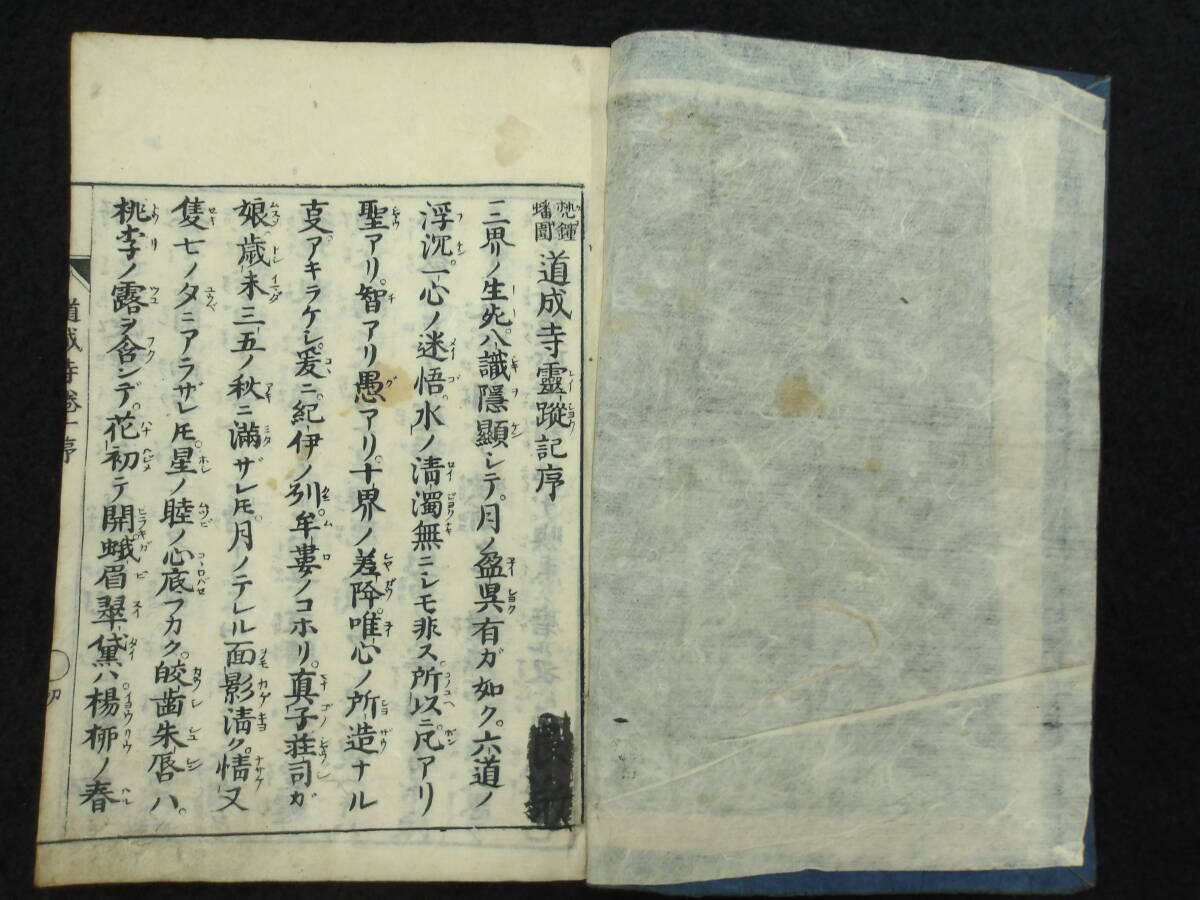 梵鐘蟠圖 道成寺靈蹤記序
三界ノ生死八識隱顯シテ。月ノ盈昃有ガ如ク。六道ノ
浮沉一心ノ迷悟。水ノ清濁無ニシモ非ス。所以ニ凡アリ
聖アリ。智アリ愚アリ。十界ノ差降唯心ノ所造ナル
叓アキラケシ。爰ニ紀伊ノ州牟婁ノコホリ。真子荘司ガ
娘。歳未三五ノ秋ニ滿ザレ𪜈。月ノテレル面影清ク。情又
隻七ノ夕ニアラザレ𪜈。星ノ睦ノ心底フカク。皎齒朱唇ハ。
桃李ノ露ヲ含ンデ。花初テ開蛾眉翠黛ハ。楊柳ノ春
道成寺卷一序
〇初